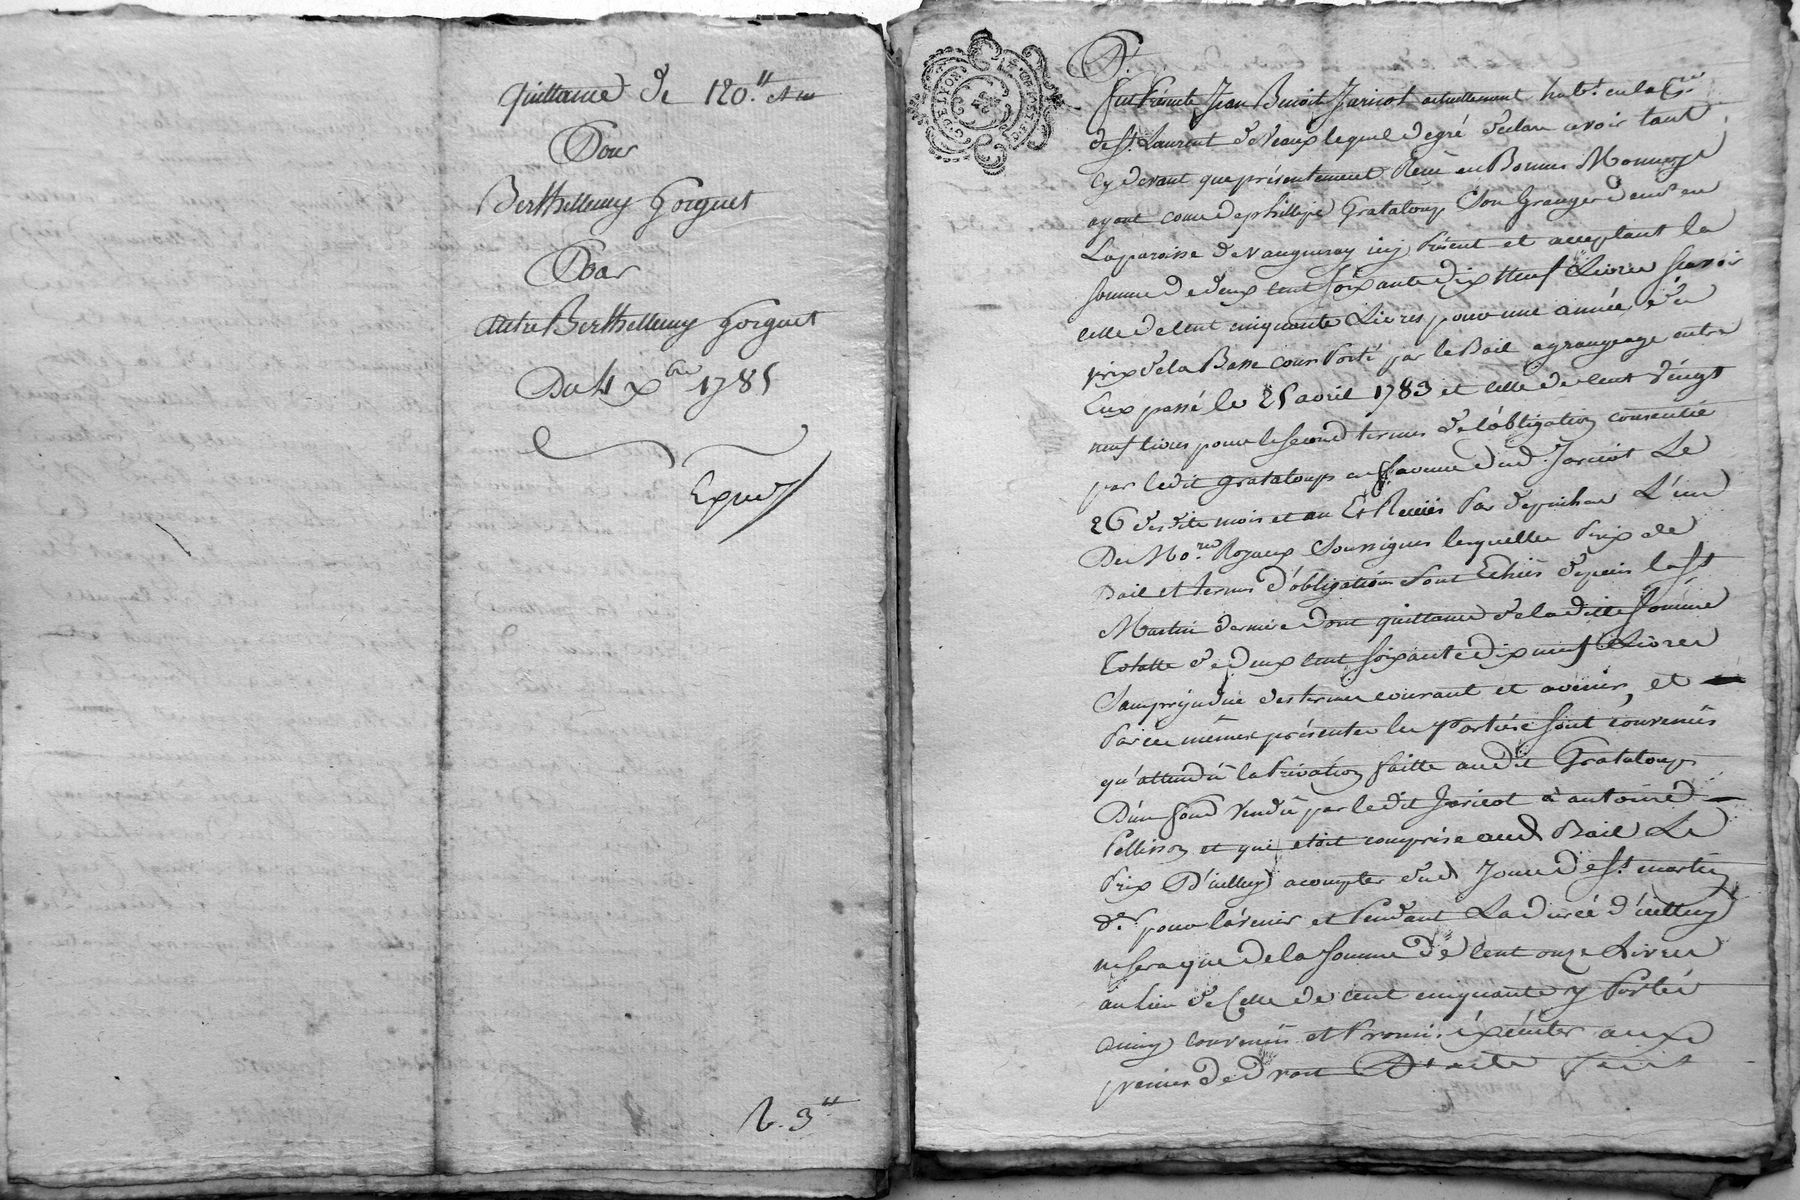 quittance de 120.# et
Pour
Berthellemy Gorguet
Par
autre Berthellemy Gorguet
Du 4 Xbre 1785
Exped
R. 3#
G. DE LYON
Fut Présente Jean Benoit Jaricot actuellement habt. en la
de St Laurent de Veaux lequel de gré déclare avoir tant
cy devant que présentement Reçu en Bonnes Monnoye
ayant cour de phillipe Grataloup Son Granger demt en
La paroisse de Vaugneray icy Présent et acceptant la
somme de deux cent soixante dix Neuf Livres sçavoir
celle de Cent cinquante Livres pour une année du
prix de la Basse cour Porté par le Bail a grangeage entre
Eux passé le 25 avril 1783 et celle de Cent vingt
neuf livres pour le second terme de l'obligation consentie
par ledit Grataloup en faveur dud. Jaricot Le
26 desdits mois et an Et Reçües Par depinhac L'un
Des Nores Royaux Soussignes lesquelles Prix de
Bail et termes d'obligation Sont Echûs depuis la St
Martin dernier dont quittance de la ditte Somme
Totalle de deux cent soixante dix neuf Livres
Sans préjudice des termes courant et avenir, et
Par ces mêmes présentes les Parties sont convenües
qu'attendû la Privation faitte audit Grataloup
D'un fond Vendû par ledit Jaricot à antoine
Pellisson et qui etoit comprise aud Bail Le
Prix D'icelluy a compter dud Jour de St martin
der. pour l'avenir et Pendant La durée d'icelluy
ne sera que de la Somme de Cent onze Livres
au lieu de Celle de cent cinquante y Portée
ainsy convenüs et Promis éxécuter aux
peines de droit D'acte Fait